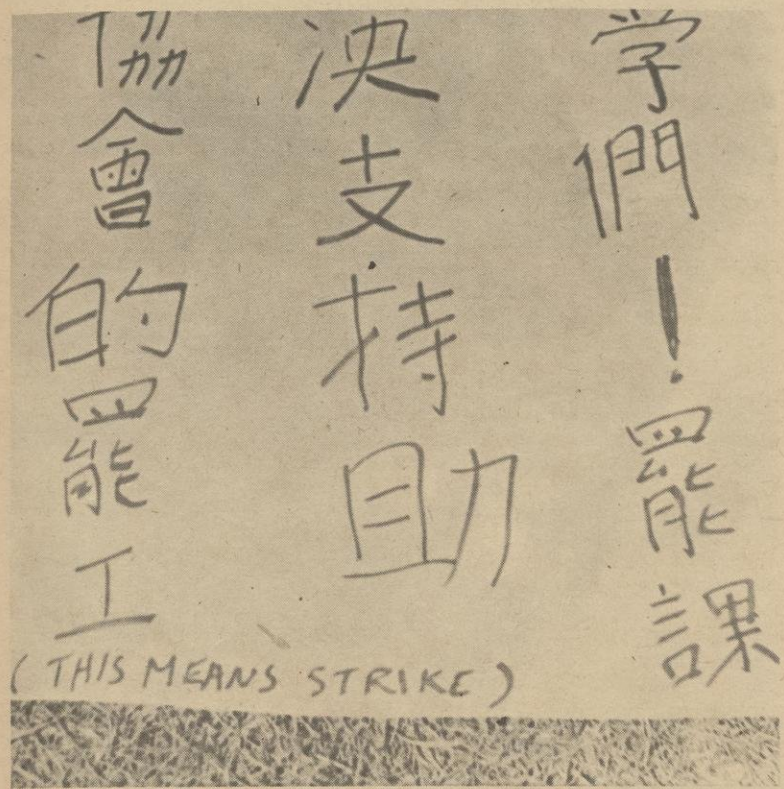 学們！罷課
决支持助
協會的罷工
(THIS MEANS STRIKE)